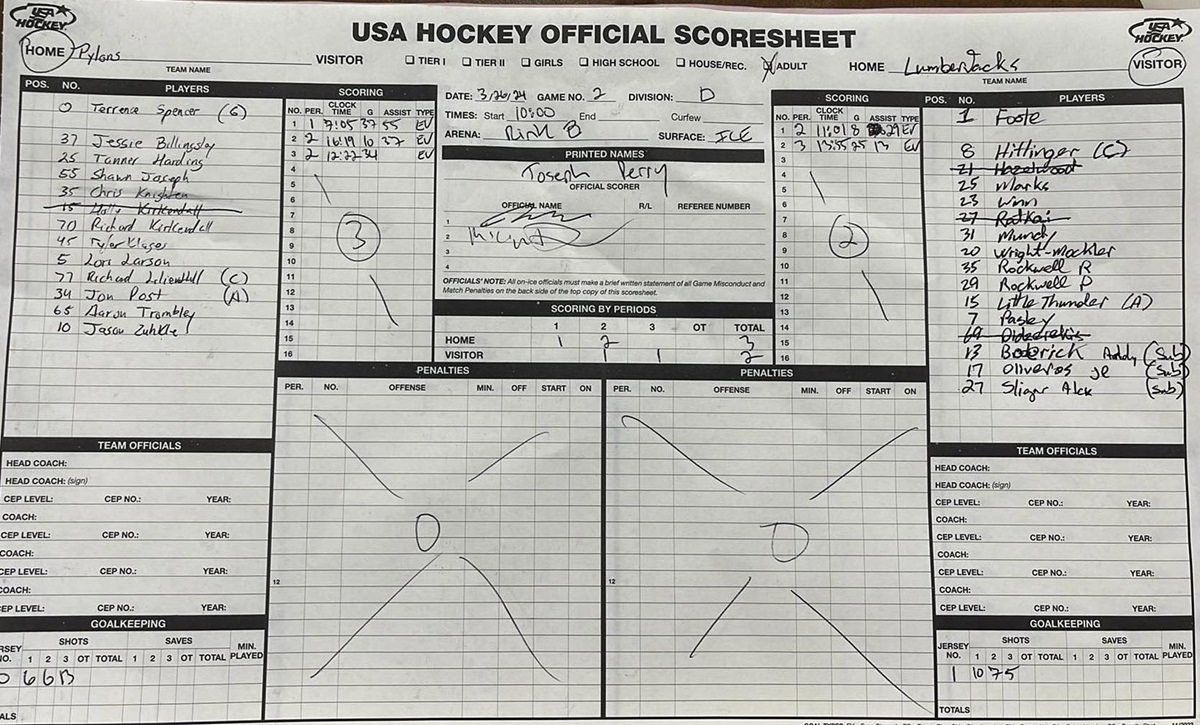 USA HOCKEY
USA HOCKEY OFFICIAL SCORESHEET
USA HOCKEY
HOME Pylons VISITOR
TEAM NAME
TIER I TIER II GIRLS HIGH SCHOOL HOUSE/REC. ADULT
HOME LumberJacks VISITOR
TEAM NAME
POS. NO. PLAYERS
0 Terrence Spencer (G)
37 Jessie Billingsley
25 Tanner Harding
55 Shawn Joseph
35 Chris Knighten
15 Holly Kirkendall
70 Richard Kirkendall
95 Tyler Klages
5 Lori Larson
77 Richard Lilienthall (C)
34 Jon Post (A)
65 Aaron Trombley
10 Jason Zuhkle
SCORING
NO. PER. CLOCK TIME G ASSIST TYPE
1 1 7:05 37 55 EV
2 2 16:19 10 37 EV
3 2 12:22 34 EV
4
5
6
7
8
9
10
11
12
13
14
15
16
3
DATE: 3/26/24 GAME NO. 2 DIVISION: D
TIMES: Start 10:00 End Curfew
ARENA: Rink B SURFACE: ICE
PRINTED NAMES
Joseph Perry
OFFICIAL SCORER
OFFICIAL NAME R/L REFEREE NUMBER
1
2
3
4
OFFICIALS' NOTE: All on-ice officials must make a brief written statement of all Game Misconduct and
Match Penalties on the back side of the top copy of this scoresheet.
SCORING BY PERIODS
1 2 3 OT TOTAL
HOME 1 2 3
VISITOR 1 1 2
SCORING
NO. PER. CLOCK TIME G ASSIST TYPE
1 2 11:01 8 29 EV
2 3 13:55 25 13 EV
3
4
5
6
7
8
9
10
11
12
13
14
15
16
2
POS. NO. PLAYERS
1 Foote
8 Hittinger (C)
21 Hazelwood
25 Marks
23 Winn
27 Ratkai
31 Mundy
20 Wright-Mockler
35 Rockwell R
29 Rockwell P
15 Little Thunder (A)
7 Pasley
69
13 Boderick Addy (Sub)
17 Oliveros Je (Sub)
27 Sliger Alek (Sub)
PENALTIES
PER. NO. OFFENSE MIN. OFF START ON
0
12
PENALTIES
PER. NO. OFFENSE MIN. OFF START ON
0
12
TEAM OFFICIALS
HEAD COACH:
HEAD COACH: (sign)
CEP LEVEL: CEP NO.: YEAR:
COACH:
CEP LEVEL: CEP NO.: YEAR:
COACH:
CEP LEVEL: CEP NO.: YEAR:
COACH:
CEP LEVEL: CEP NO.: YEAR:
GOALKEEPING
JERSEY NO. SHOTS 1 2 3 OT TOTAL SAVES 1 2 3 OT TOTAL MIN. PLAYED
0 6 6 13
TEAM OFFICIALS
HEAD COACH:
HEAD COACH: (sign)
CEP LEVEL: CEP NO.: YEAR:
COACH:
CEP LEVEL: CEP NO.: YEAR:
COACH:
CEP LEVEL: CEP NO.: YEAR:
COACH:
CEP LEVEL: CEP NO.: YEAR:
GOALKEEPING
JERSEY NO. SHOTS 1 2 3 OT TOTAL SAVES 1 2 3 OT TOTAL MIN. PLAYED
1 10 7 5
TOTALS